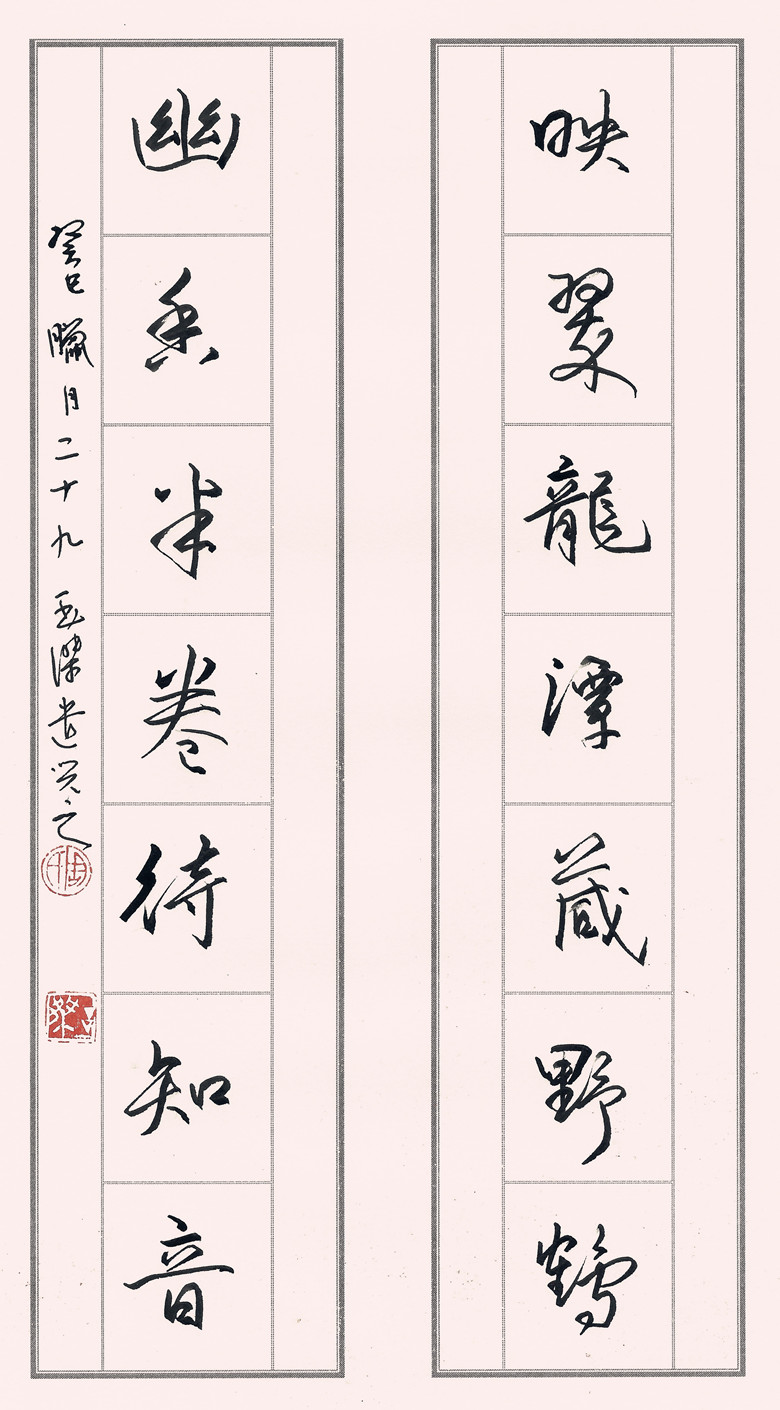 映翠龍潭蔵野鶴
幽香半卷待知音
癸巳臘月二十九玉潔遣興之